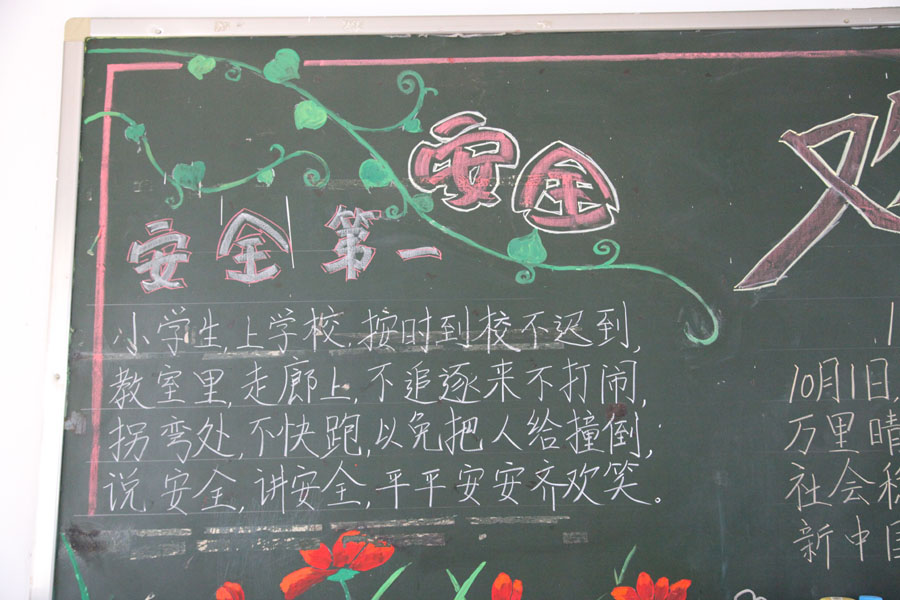 安全
安全第一
小学生,上学校,按时到校不迟到,
教室里,走廊上,不追逐来不打闹,
拐弯处,不快跑,以免把人给撞倒;
说安全,讲安全,平平安安齐欢笑。
10月1日,
万里晴
社会稳
新中国